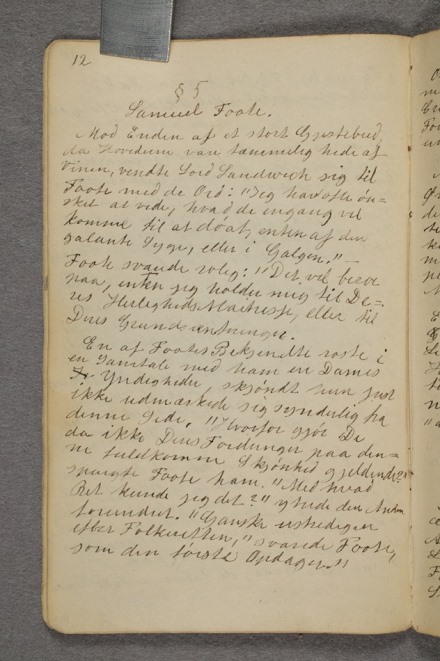 12
§ 5
Samuel Foote.
Mod Enden af et stort Gjæstebud,
da Hovederne vare temmelig hede af
Vinen, vendte Lord Sandwich sig til
Foote med de Ord: "Jeg har ofte øn=
sket at vide, hvad De engang vil
komme til at dø af, enten af den
galante Syge, eller i Galgen." —
Foote svarede rolig: "Det vil beroe
paa, enten jeg holder mig til De=
res Herligheds Maitresse, eller til
Deres Grundsætninger.
En af Footes Bekjendte roste i
en Samtale med ham en Dames
Yndigheder, skjøndt hun just
ikke udmærkede sig synderlig fra
denne Side. "Hvorfor gjør De
da ikke Deres Fordringer paa den=
ne fuldkomne Skjønhed gjeldende?"
spurgte Foote ham. "Med hvad
Ret kunde jeg det?" yttrede den Anden
forundret. "Ganske
efter Folkeretten," svarede Foote,
som den første Opdager."